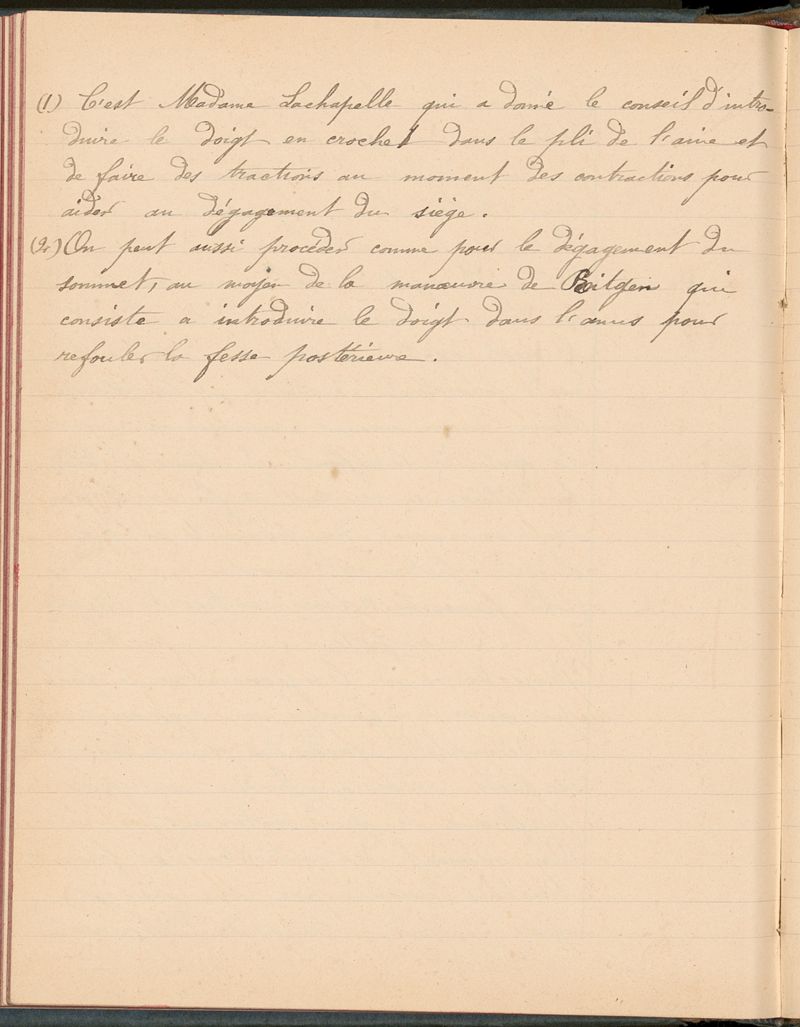 (1) C'est Madame Lachapelle qui a donné le conseil d'intro-
duire le doigt en crochet dans le pli de l'aine et
de faire des tractions au moment des contractions pour
aider au dégagement du siège.
(2) On peut aussi procéder comme pour le dégagement du
sommet, au moyen de la manœuvre de Ritgen qui
consiste a introduire le doigt dans l'anus pour
refouler la fesse postérieure.